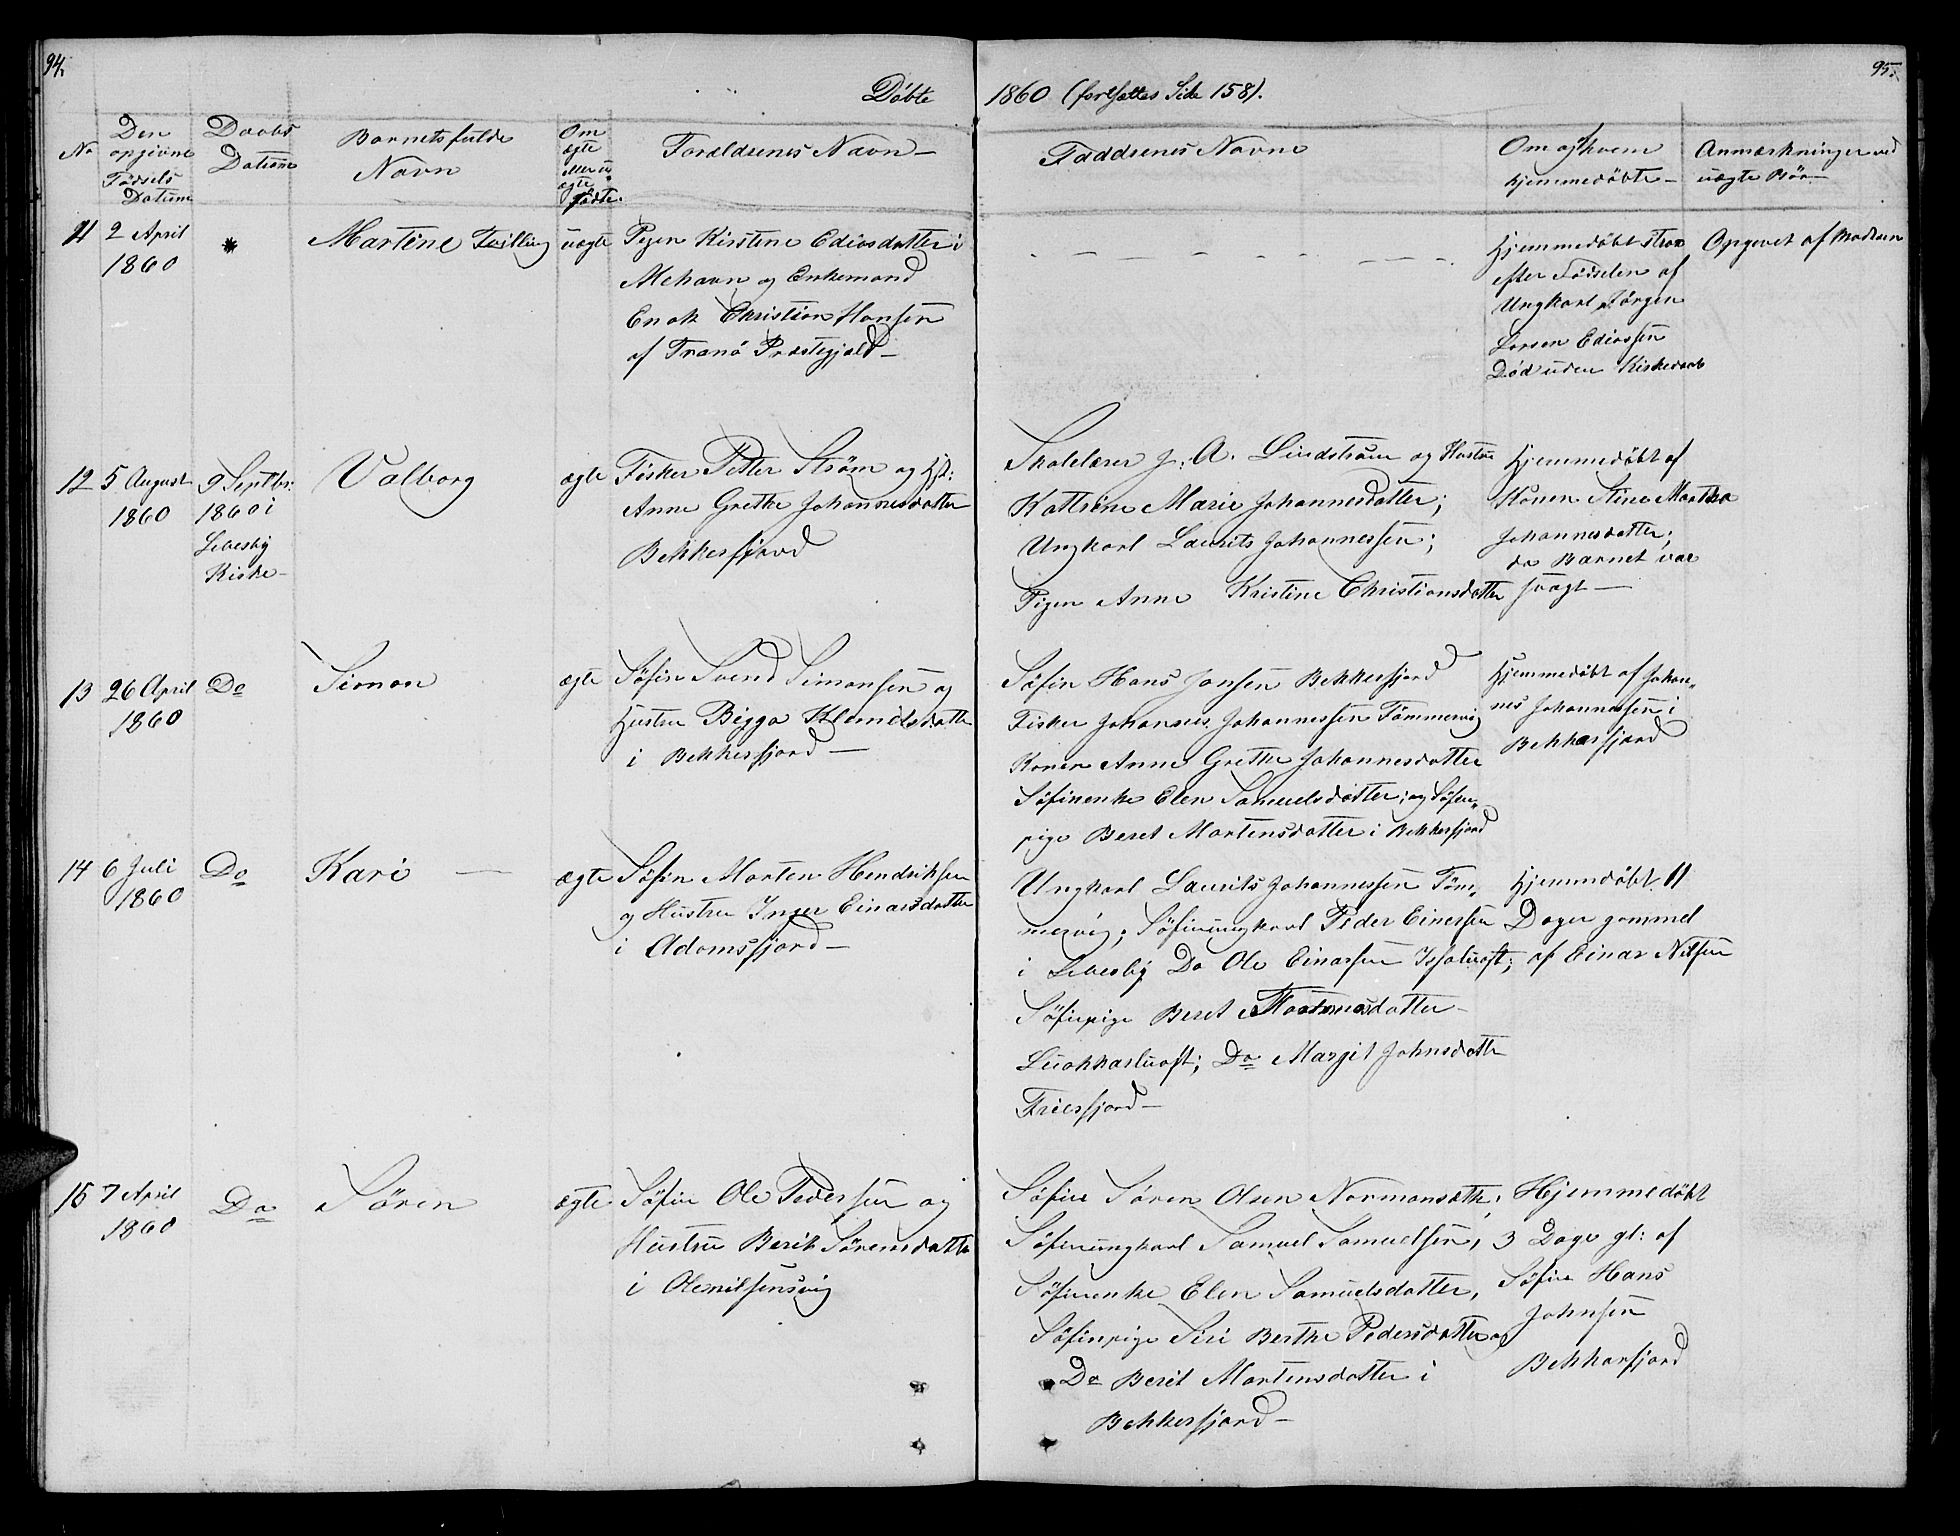 94.
95.
Døbte 1860 (fortsættes Side 158).
No
Den opgivne Fødsels Datum
Daabs Datum
Barnets fulde Navn
Om ægte eller uægte fødte.
Forældrenes Navn
Faddrenes Navne
Om og af hvem hjemmedøbte
Anmærkninger ved uægte Børn
11
2 April
1860
*
Martine Tvilling
uægte
Pigen Kirstine Ediasdatter i
Mehavn og Enkemand
Enok Christian Hansen
af Tranø Præstegjæld
Hjemmedøbt strax
efter Fødselen af
Ungkarl Jørgen
Larsen Ediassen
Død uden Kirkedaab
Opgivet af Moderen
12
5 August
1860
9 Septbr:
1860 i
Lebesby
Kirke
Valborg
ægte
Fisker Petter Strøm og Hst:
Anne Grethe Johannesdatter
Bekkerfjord
Skolelærer J. A. Lindstrøm og Hustru
Kathrine Marie Johannesdatter;
Ungkarl Laurits Johannessen;
Pigen Anne Kristine Christiansdatter
Hjemmedøbt af
Konen Stine Martha
Johannesdatter;
da Barnet var
svagt
13
26 April
1860
Do
Simon
ægte
Søfin Svend Simonsen og
Hustru Bigga Klemetsdatter
i Bekkerfjord
Søfin Hans Jansen Bekkerfjord
Fisker Johannes Johannessen Tømmervig
Konen Anne Grethe Johannesdatter
Søfinenke Elen Samuelsdatter; og Søfin-
pige Beret Mortensdatter i Bekkerfjord
Hjemmedøbt af Johan-
nes Johannessen i
Bekkarfjord
14
6 Juli
1860
Do
Kari
ægte
Søfin Morten Hendriksen
og Hustru Inger Einarsdatter
i Adamsfjord
Ungkarl Laurits Johannessen Tøm-
mervig; Søfinungkarl Peder Einersen
i Lebesby Do Ole Einarsen
Søfinpige Beret
Do Margit Johnsdatter
Friersfjord
Hjemmdøbt 11
Dager gammel
af Einar Nilsen
15
7 April
1860
Do
Søren
ægte
Søfin Ole Pedersen og
Hustru Berit Sørensdatter
i Olenilsensvig
Søfin Søren Olsen Normansætt;
Søfinungkarl Samuel Samuelsen,
Søfinenke Elen Samuelsdatter,
Søfinpige Siri Berthe Pedersdatter og
Do Berit Mortensdatter i
Bekkerfjord
Hjemmedøbt
3 Dage gl: af
Søfin Hans
Johnsen
Bekkarfjord